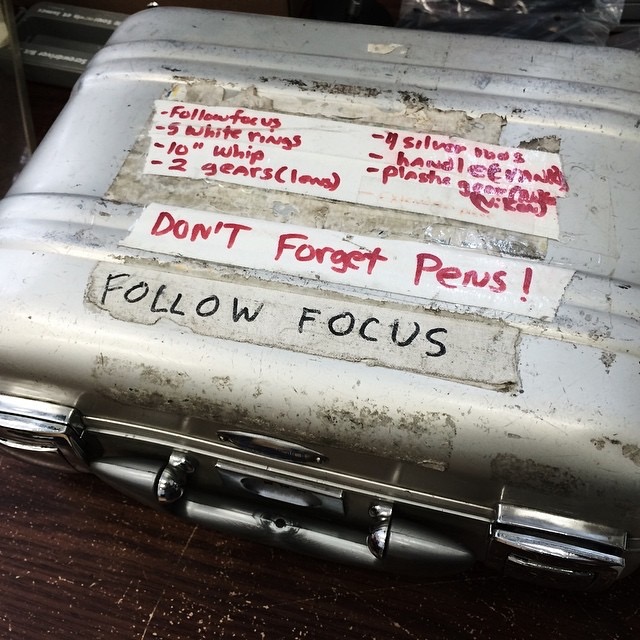 -Followfocus
-5 White rings
-10" Whip
-2 gears(lens)
-4 silver rods
- handle(crank)
-plastic
(Nikon)
DON'T Forget Pens!
FOLLOW FOCUS